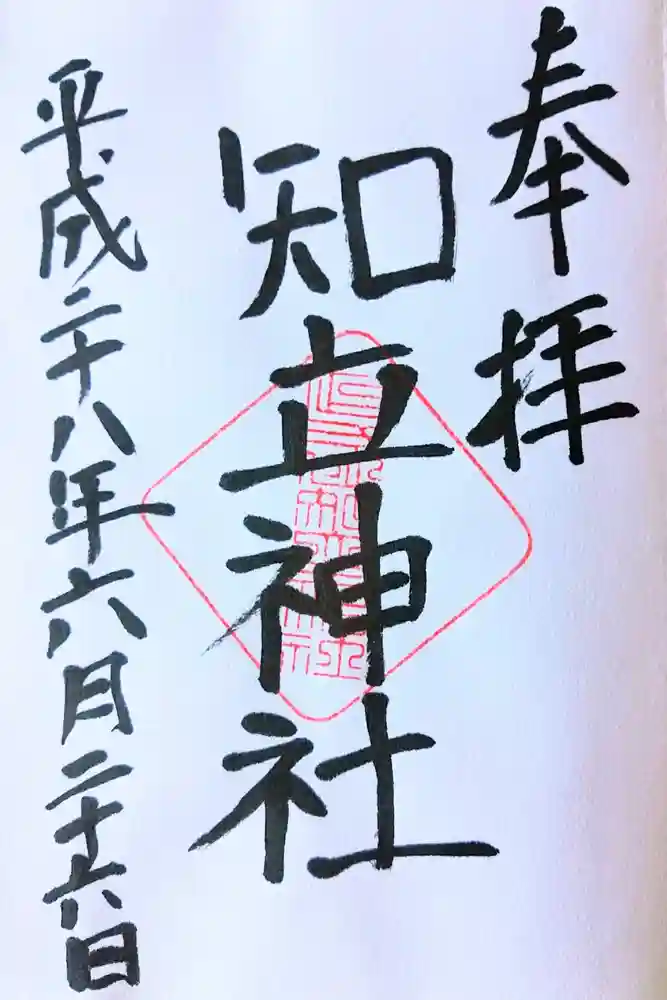 奉拝
知立神社
平成二十八年六月二十六日